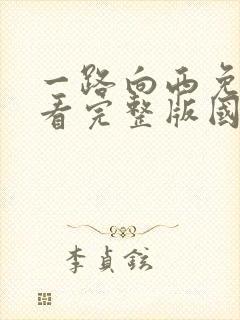 一路向西免
看完整版國
李貞鉉